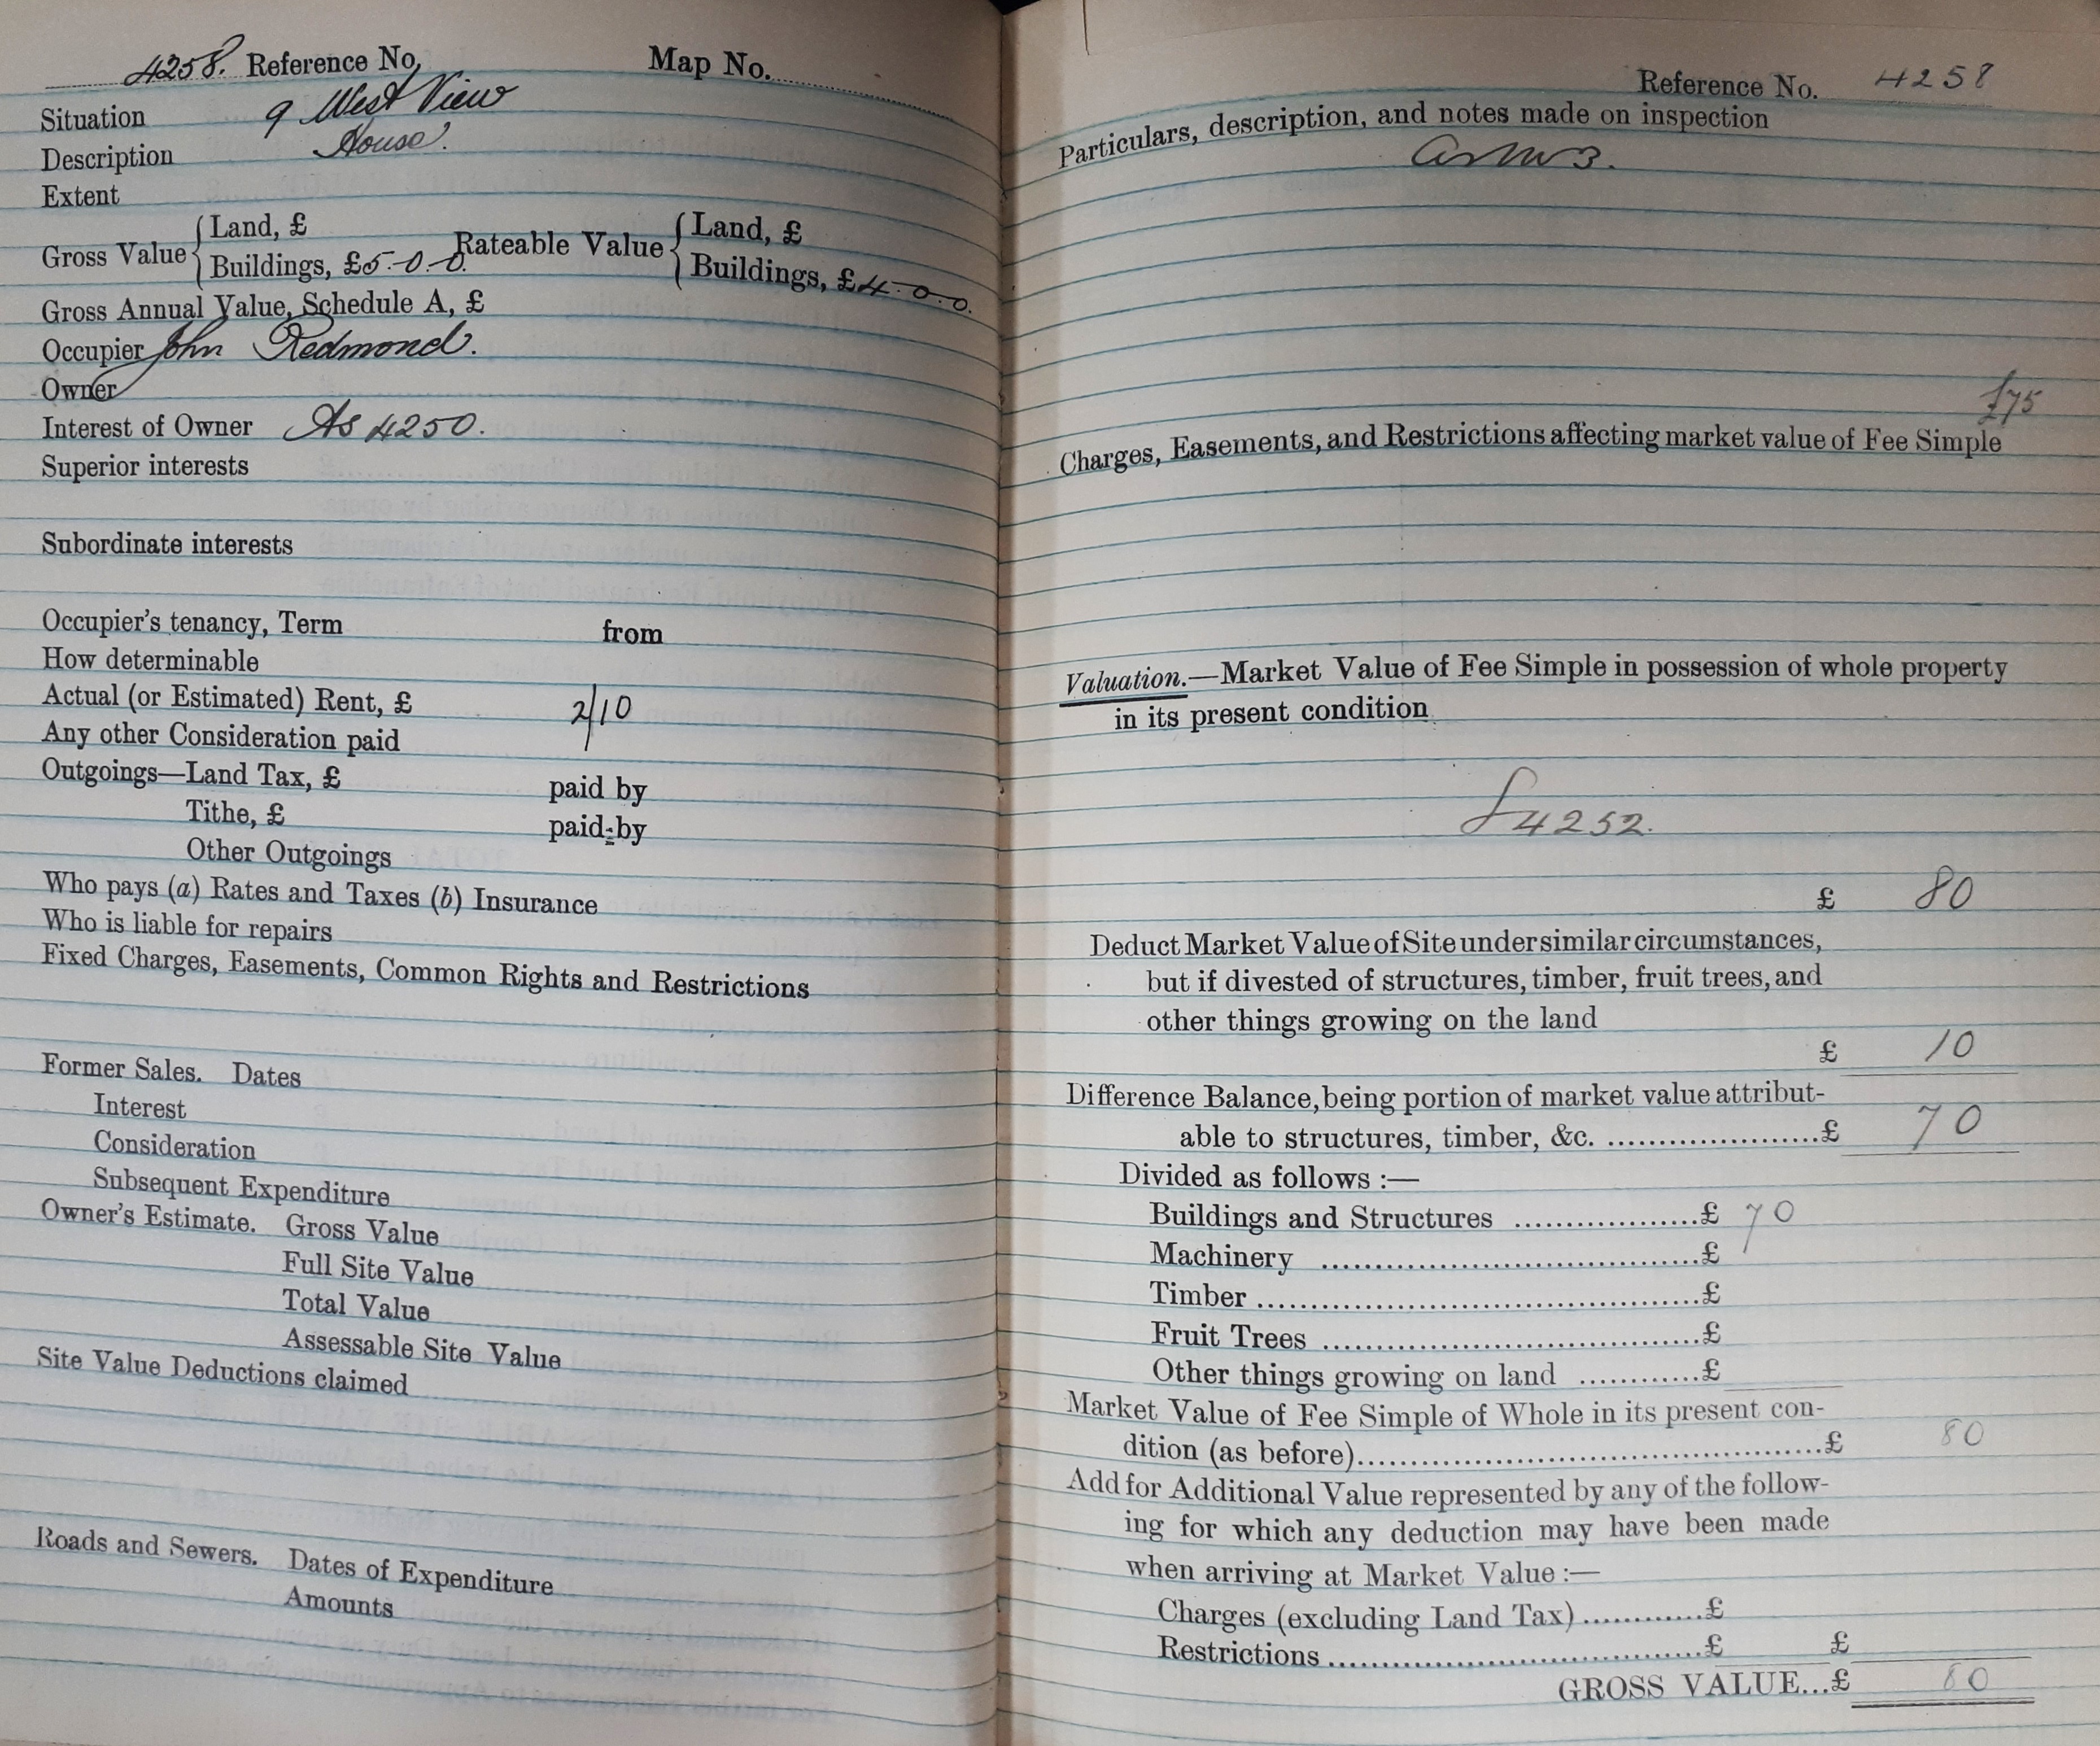 4258. Reference No. Map No.
Situation 9 West View
Description House.
Extent
Gross Value { Land, £ Rateable Value { Land, £
Buildings, £5-0-0. Buildings, £4-0-0.
Gross Annual Value, Schedule A, £
Occupier John Redmond.
Owner
Interest of Owner As 4250.
Superior interests
Subordinate interests
Occupier's tenancy, Term from
How determinable
Actual (or Estimated) Rent, £ 2/10
Any other Consideration paid
Outgoings—Land Tax, £ paid by
Tithe, £ paid by
Other Outgoings
Who pays (a) Rates and Taxes (b) Insurance
Who is liable for repairs
Fixed Charges, Easements, Common Rights and Restrictions
Former Sales. Dates
Interest
Consideration
Subsequent Expenditure
Owner's Estimate. Gross Value
Full Site Value
Total Value
Assessable Site Value
Site Value Deductions claimed
Roads and Sewers. Dates of Expenditure
Amounts
Reference No. 4258
Particulars, description, and notes made on inspection
£75
Charges, Easements, and Restrictions affecting market value of Fee Simple
Valuation.—Market Value of Fee Simple in possession of whole property
in its present condition
4252.
£ 80
Deduct Market Value of Site under similar circumstances,
but if divested of structures, timber, fruit trees, and
other things growing on the land
£ 10
Difference Balance, being portion of market value attribut-
able to structures, timber, &c. ......................£ 70
Divided as follows :—
Buildings and Structures ...................£ 70
Machinery .......................................£
Timber .............................................£
Fruit Trees .......................................£
Other things growing on land ............£
Market Value of Fee Simple of Whole in its present con-
dition (as before)................................................£ 80
Add for Additional Value represented by any of the follow-
ing for which any deduction may have been made
when arriving at Market Value :—
Charges (excluding Land Tax) ............£
Restrictions ......................................£ £
GROSS VALUE...£ 80